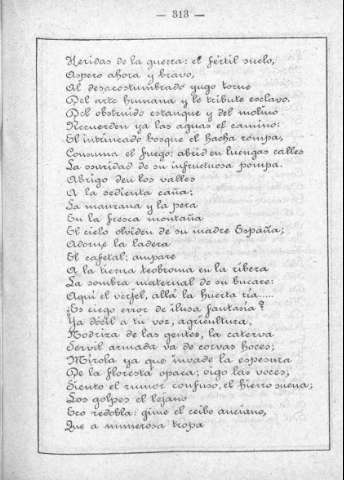 — 313 —
Heridas de la guerra: el fértil suelo,
Aspero ahora y bravo,
Al desacostumbrado yugo torne
Del arte humana y le tribute esclavo.
Del obstruido estanque y del molino
Recuerden ya las aguas el camino:
El intrincado bosque el hacha rompa,
Consuma el fuego: abrid en luengas calles
La oscuridad de su infructuosa pompa.
Abrigo den los valles
A la sedienta caña;
La manzana y la pera
En la fresca montaña
El cielo olviden de su madre España;
Adorne la ladera
El cafetal: ampare
A la tierna teobroma en la ribera
La sombra maternal de su bucare:
Aquí el verjel, allá la huerta ría....
¿Es ciego error de ilusa fantasía?
Ya dócil a tu voz, agricultura,
Nodriza de las gentes, la caterva
Servil armada va de corvas hoces;
Mírola ya que invade la espesura
De la floresta opaca; oigo las voces;
Siento el rumor confuso, el hierro suena;
Los golpes el lejano
Eco redobla: gime el ceibo anciano,
Que a numerosa tropa